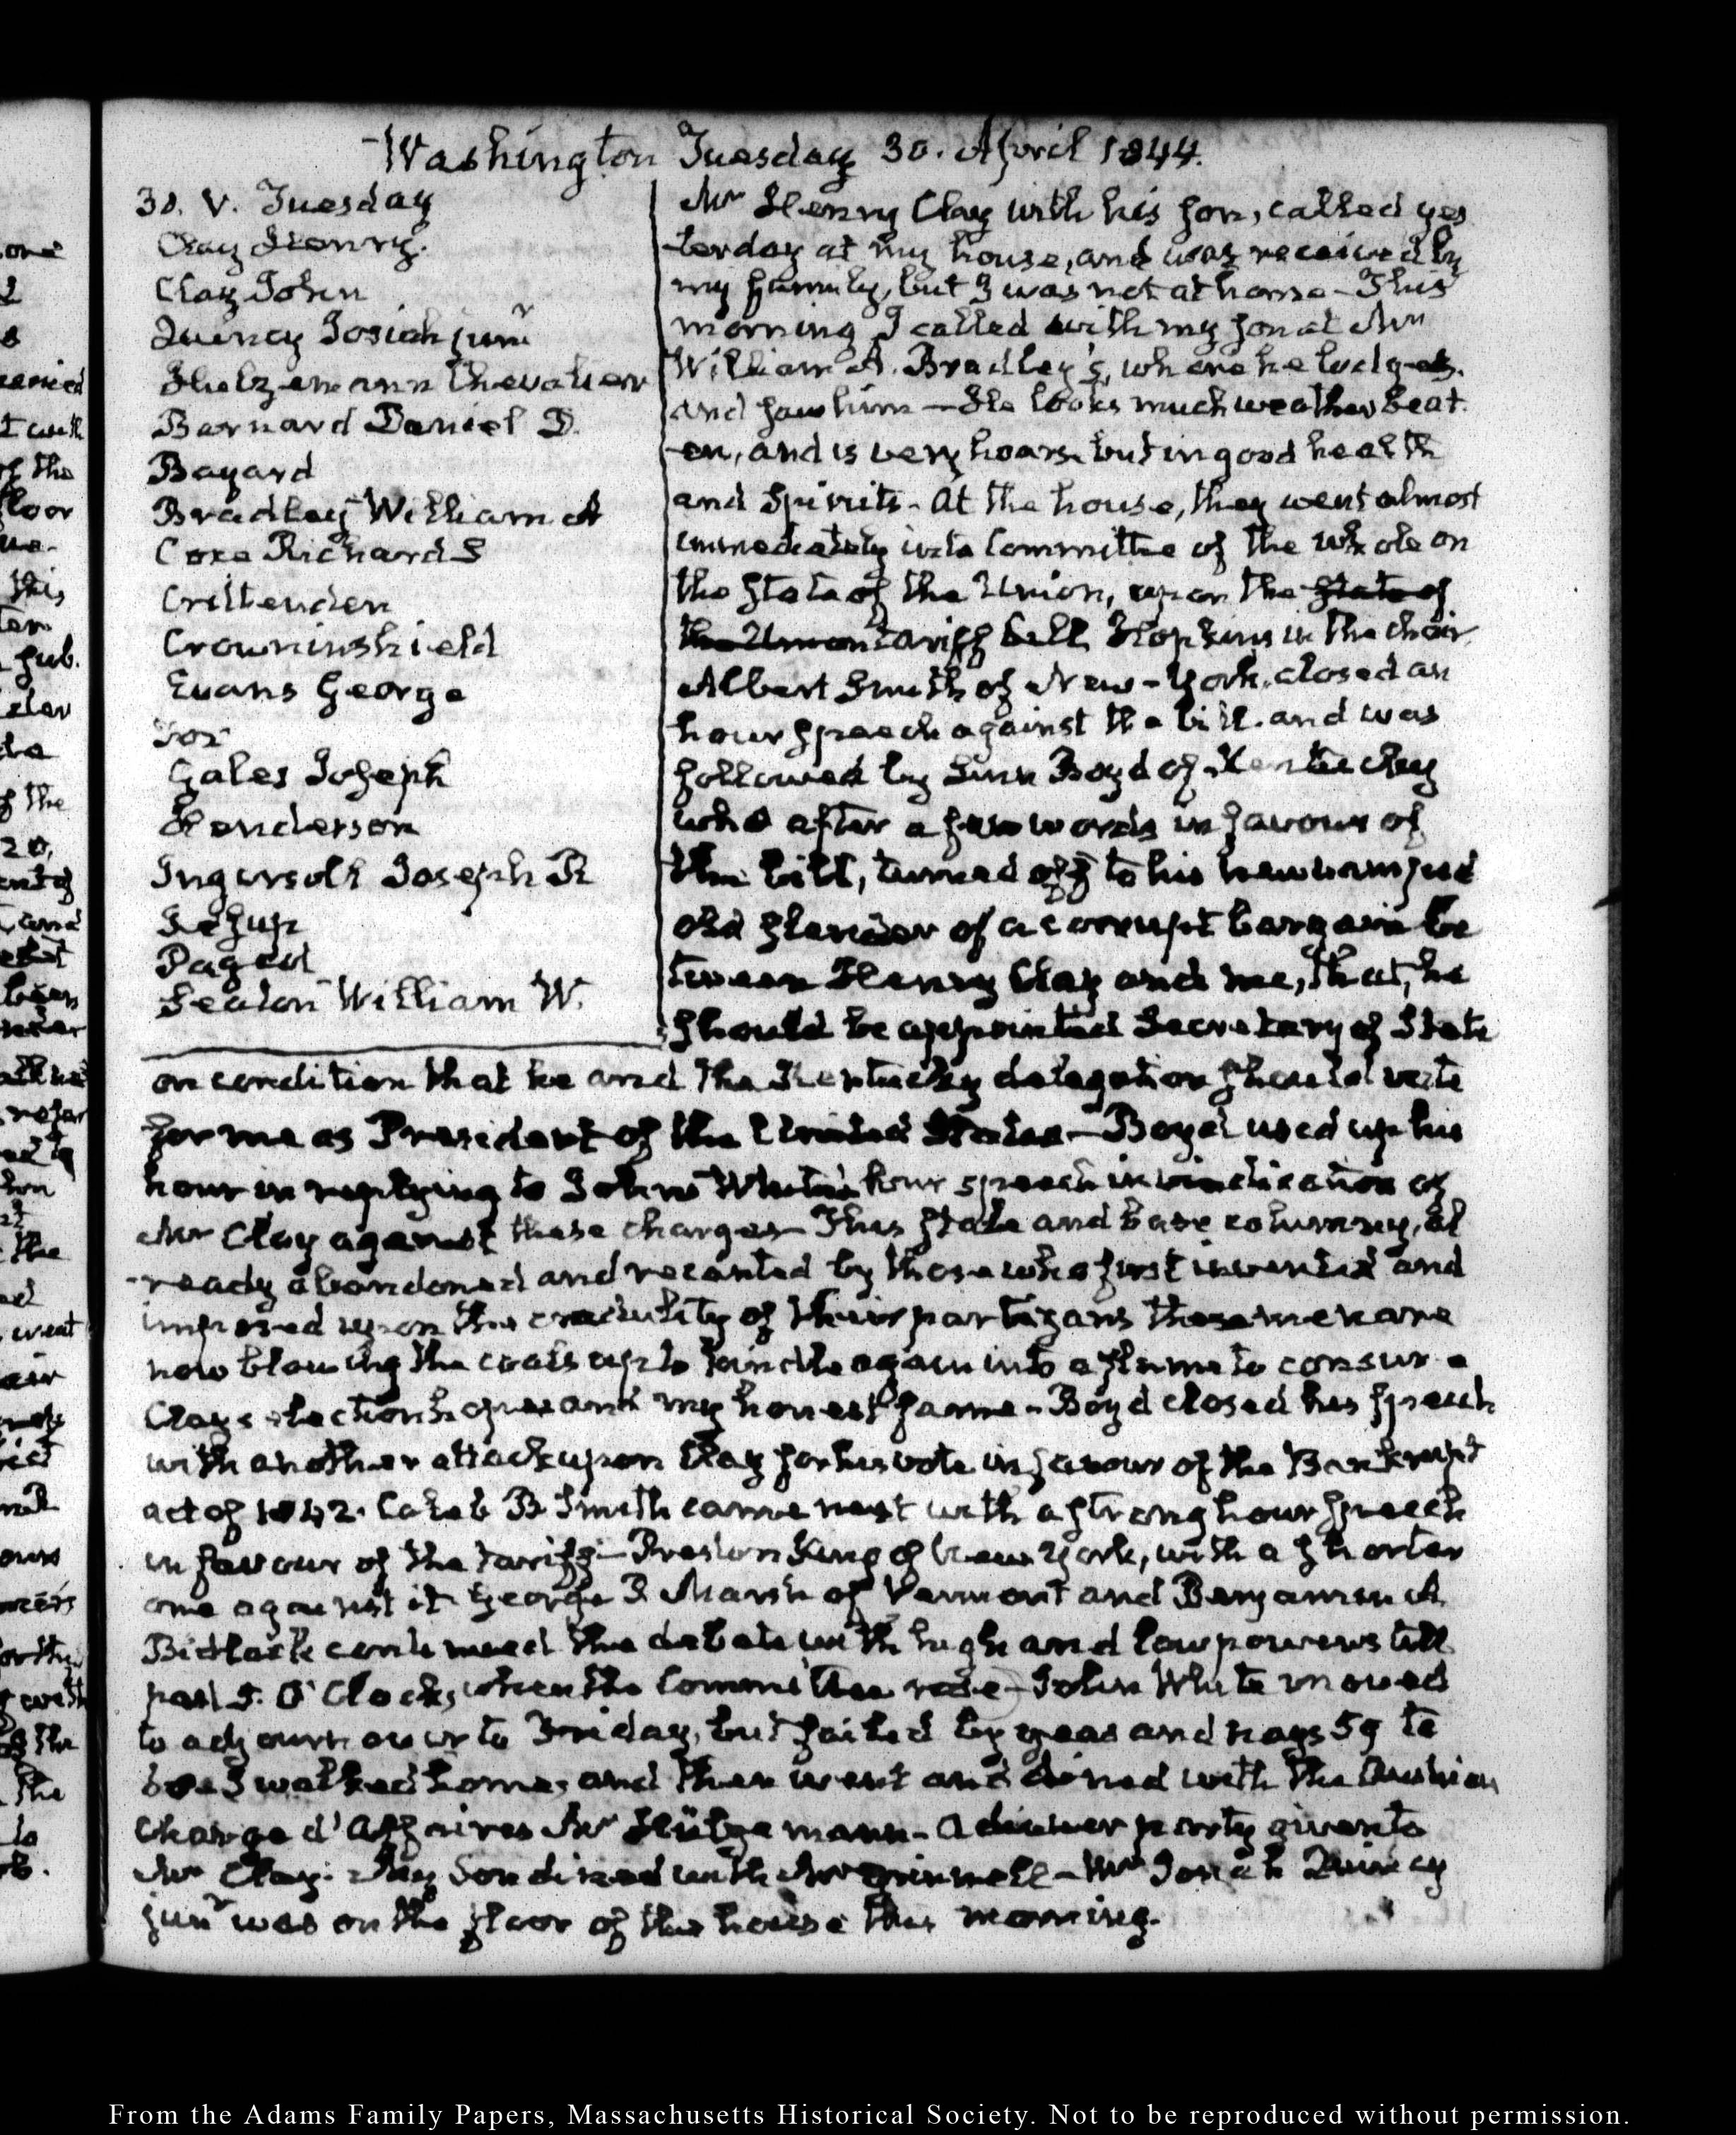 Washington Tuesday 30. April 1844.
30. V. Tuesday
Clay Henry.
Clay John
Quincy Josiah junr
Hulzemann Chevalier
Barnard Daniel D.
Bayard
Bradley William A
Coxe Richard S
Crittenden
Crowninshield
Evans George
Fox
Gales Joseph
Henderson
Ingersoll Joseph R
Jesup
Pageot
Seaton William W.
Mr Henry Clay with his son, called yes
terday at my house, and was received by
my family, but I was not at home - This
morning I called with my son at Mr
William A. Bradley's, where he lodges.
and saw him - He looks much weather beat-
en, and is very hoarse but in good health
and Spirits - At the house, they went almost
immediately into Committee of the whole on
the state of the Union, upon the state of
the Union tariff bill Hopkins in the chair
Albert Smith of New-York, closed an
hour speech against the bill. and was
followed by Linn Boyd of Kentucky
who after a few words in favour of
the bill, turned off to his new vamped
old slander of a corrupt bargain be
tween Henry Clay and me, that, he
should be appointed Secretary of State
on condition that he and the Kentucky delegation should vote
for me as President of the United States - Boyd used up his
hour in replying to John White's hour speech in vindication of
Mr Clay against these charges - This stale and base calumny, al
-ready abandoned and recanted by those who first invented and
imposed upon the credulity of their partizans these men are
now blowing the coals up to kindle again into a flame to consume
Clay's election hopes and my honest fame - Boyd closed his speech
with another attack upon Clay for his vote in favour of the Bankrupt
act of 1842. Caleb B Smith came next with a strong hour speech
in favour of the tariff - Preston King of New York, with a shorter
one against it George P Marsh of Vermont and Benjamin A
Bidlack continued the debate with high and low powers till
past 5. O'Clock, when the Committee rose - John White moved
to adjourn over to Friday, but failed by yeas and nays 59 to
I walked home, and then went and dined with the Austrian
Charge d'Affaires Mr Hülzemann - A dinner party given to
Mr Clay. My Son dined with Mr Grinnell - Mr Josiah Quincy
junr was on the floor of the house this morning.
From the Adams Family Papers, Massachusetts Historical Society. Not to be reproduced without permission.